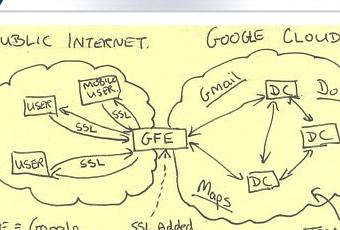 UBLIC INTERNET.
GOOGLE CLOUD
MOBILE
USER.
Gmail
USER
SSL
DC
Do
SSL
GFE
DC
USER
SSL
DC
Maps
E = Google
SSL Added